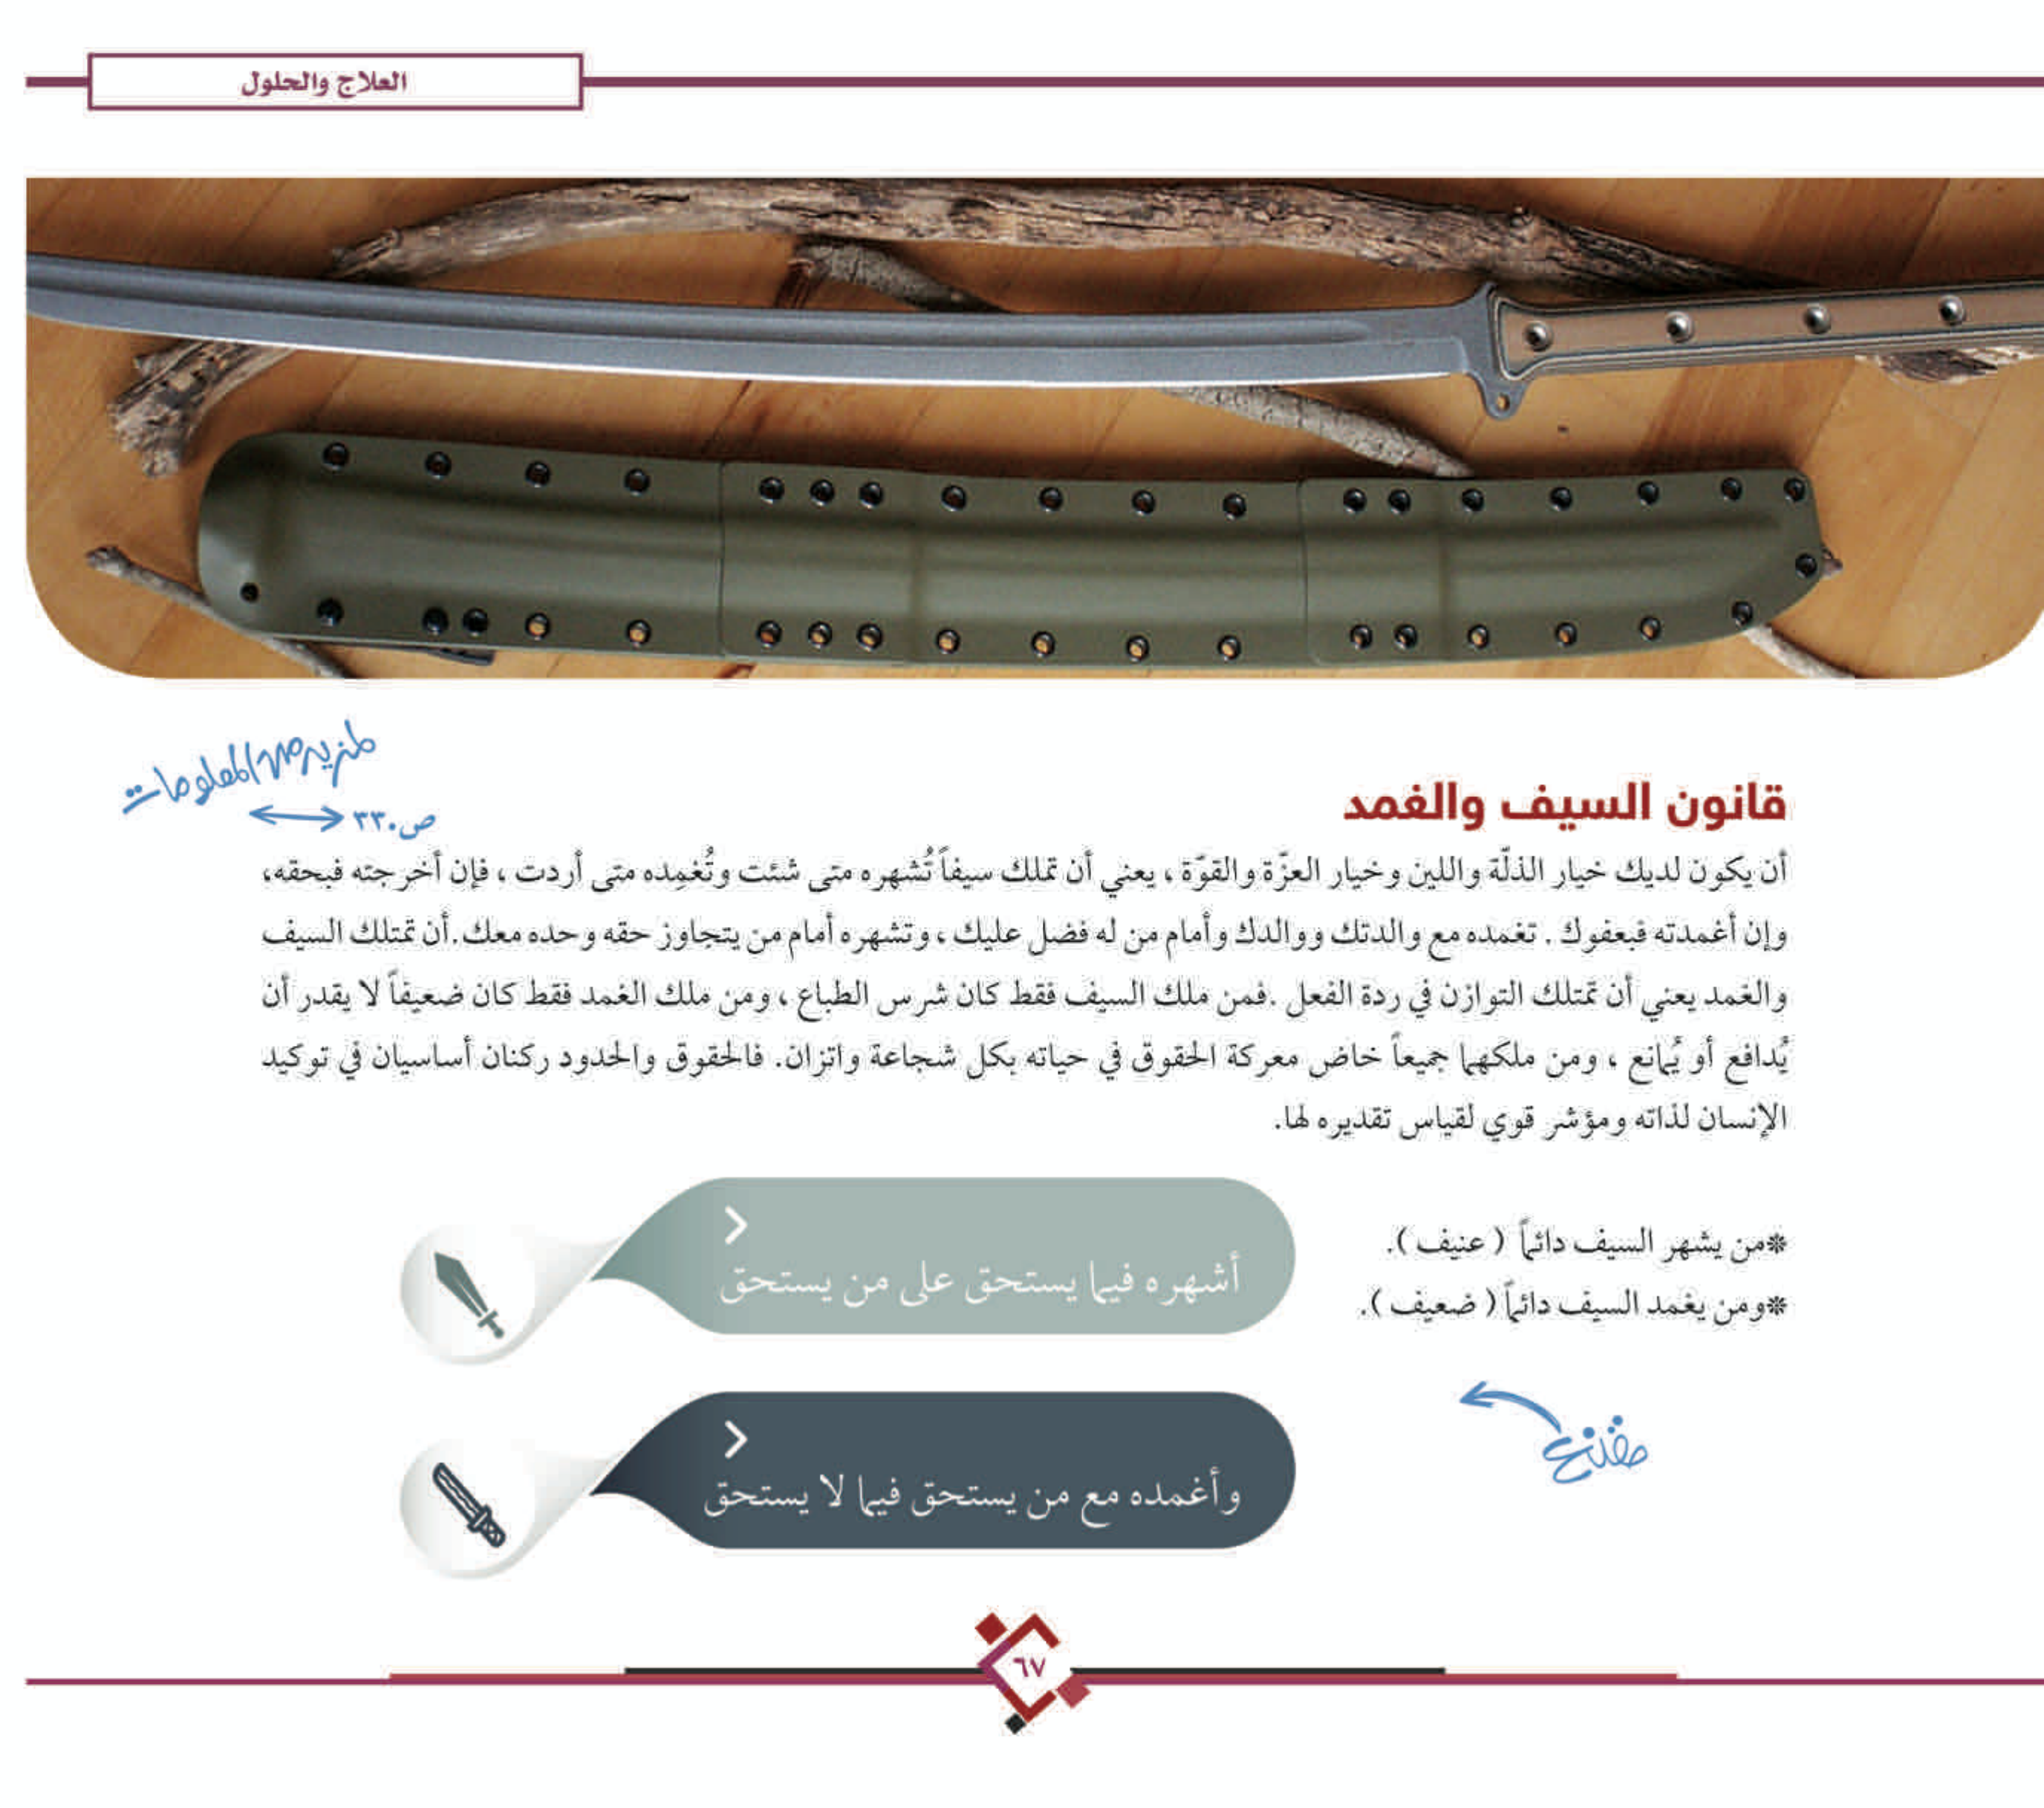 العلاج والحلول
لمزيد من المعلومات
ص٣٣٠
قانون السيف والغمد
أن يكون لديك خيار الذلّة واللين وخيار العزّة والقوّة ، يعني أن تملك سيفاً تُشهره متى شئت وتُغمِده متى أردت ، فإن أخرجته فبحقه،
وإن أغمدته فبعفوك . تغمده مع والدتك ووالدك وأمام من له فضل عليك ، وتشهره أمام من يتجاوز حقه وحده معك.أن تمتلك السيف
والغمد يعني أن تمتلك التوازن في ردة الفعل .فمن ملك السيف فقط كان شرس الطباع ، ومن ملك الغمد فقط كان ضعيفاً لا يقدر أن
يُدافع أو يُمانع ، ومن ملكهما جميعاً خاض معركة الحقوق في حياته بكل شجاعة واتزان. فالحقوق والحدود ركنان أساسيان في توكيد
الإنسان لذاته ومؤشر قوي لقياس تقديره لها.
*من يشهر السيف دائماً ( عنيف ).
*ومن يغمد السيف دائماً ( ضعيف ).
أشهره فيما يستحق على من يستحق
مقنع
وأغمده مع من يستحق فيما لا يستحق
٦٧